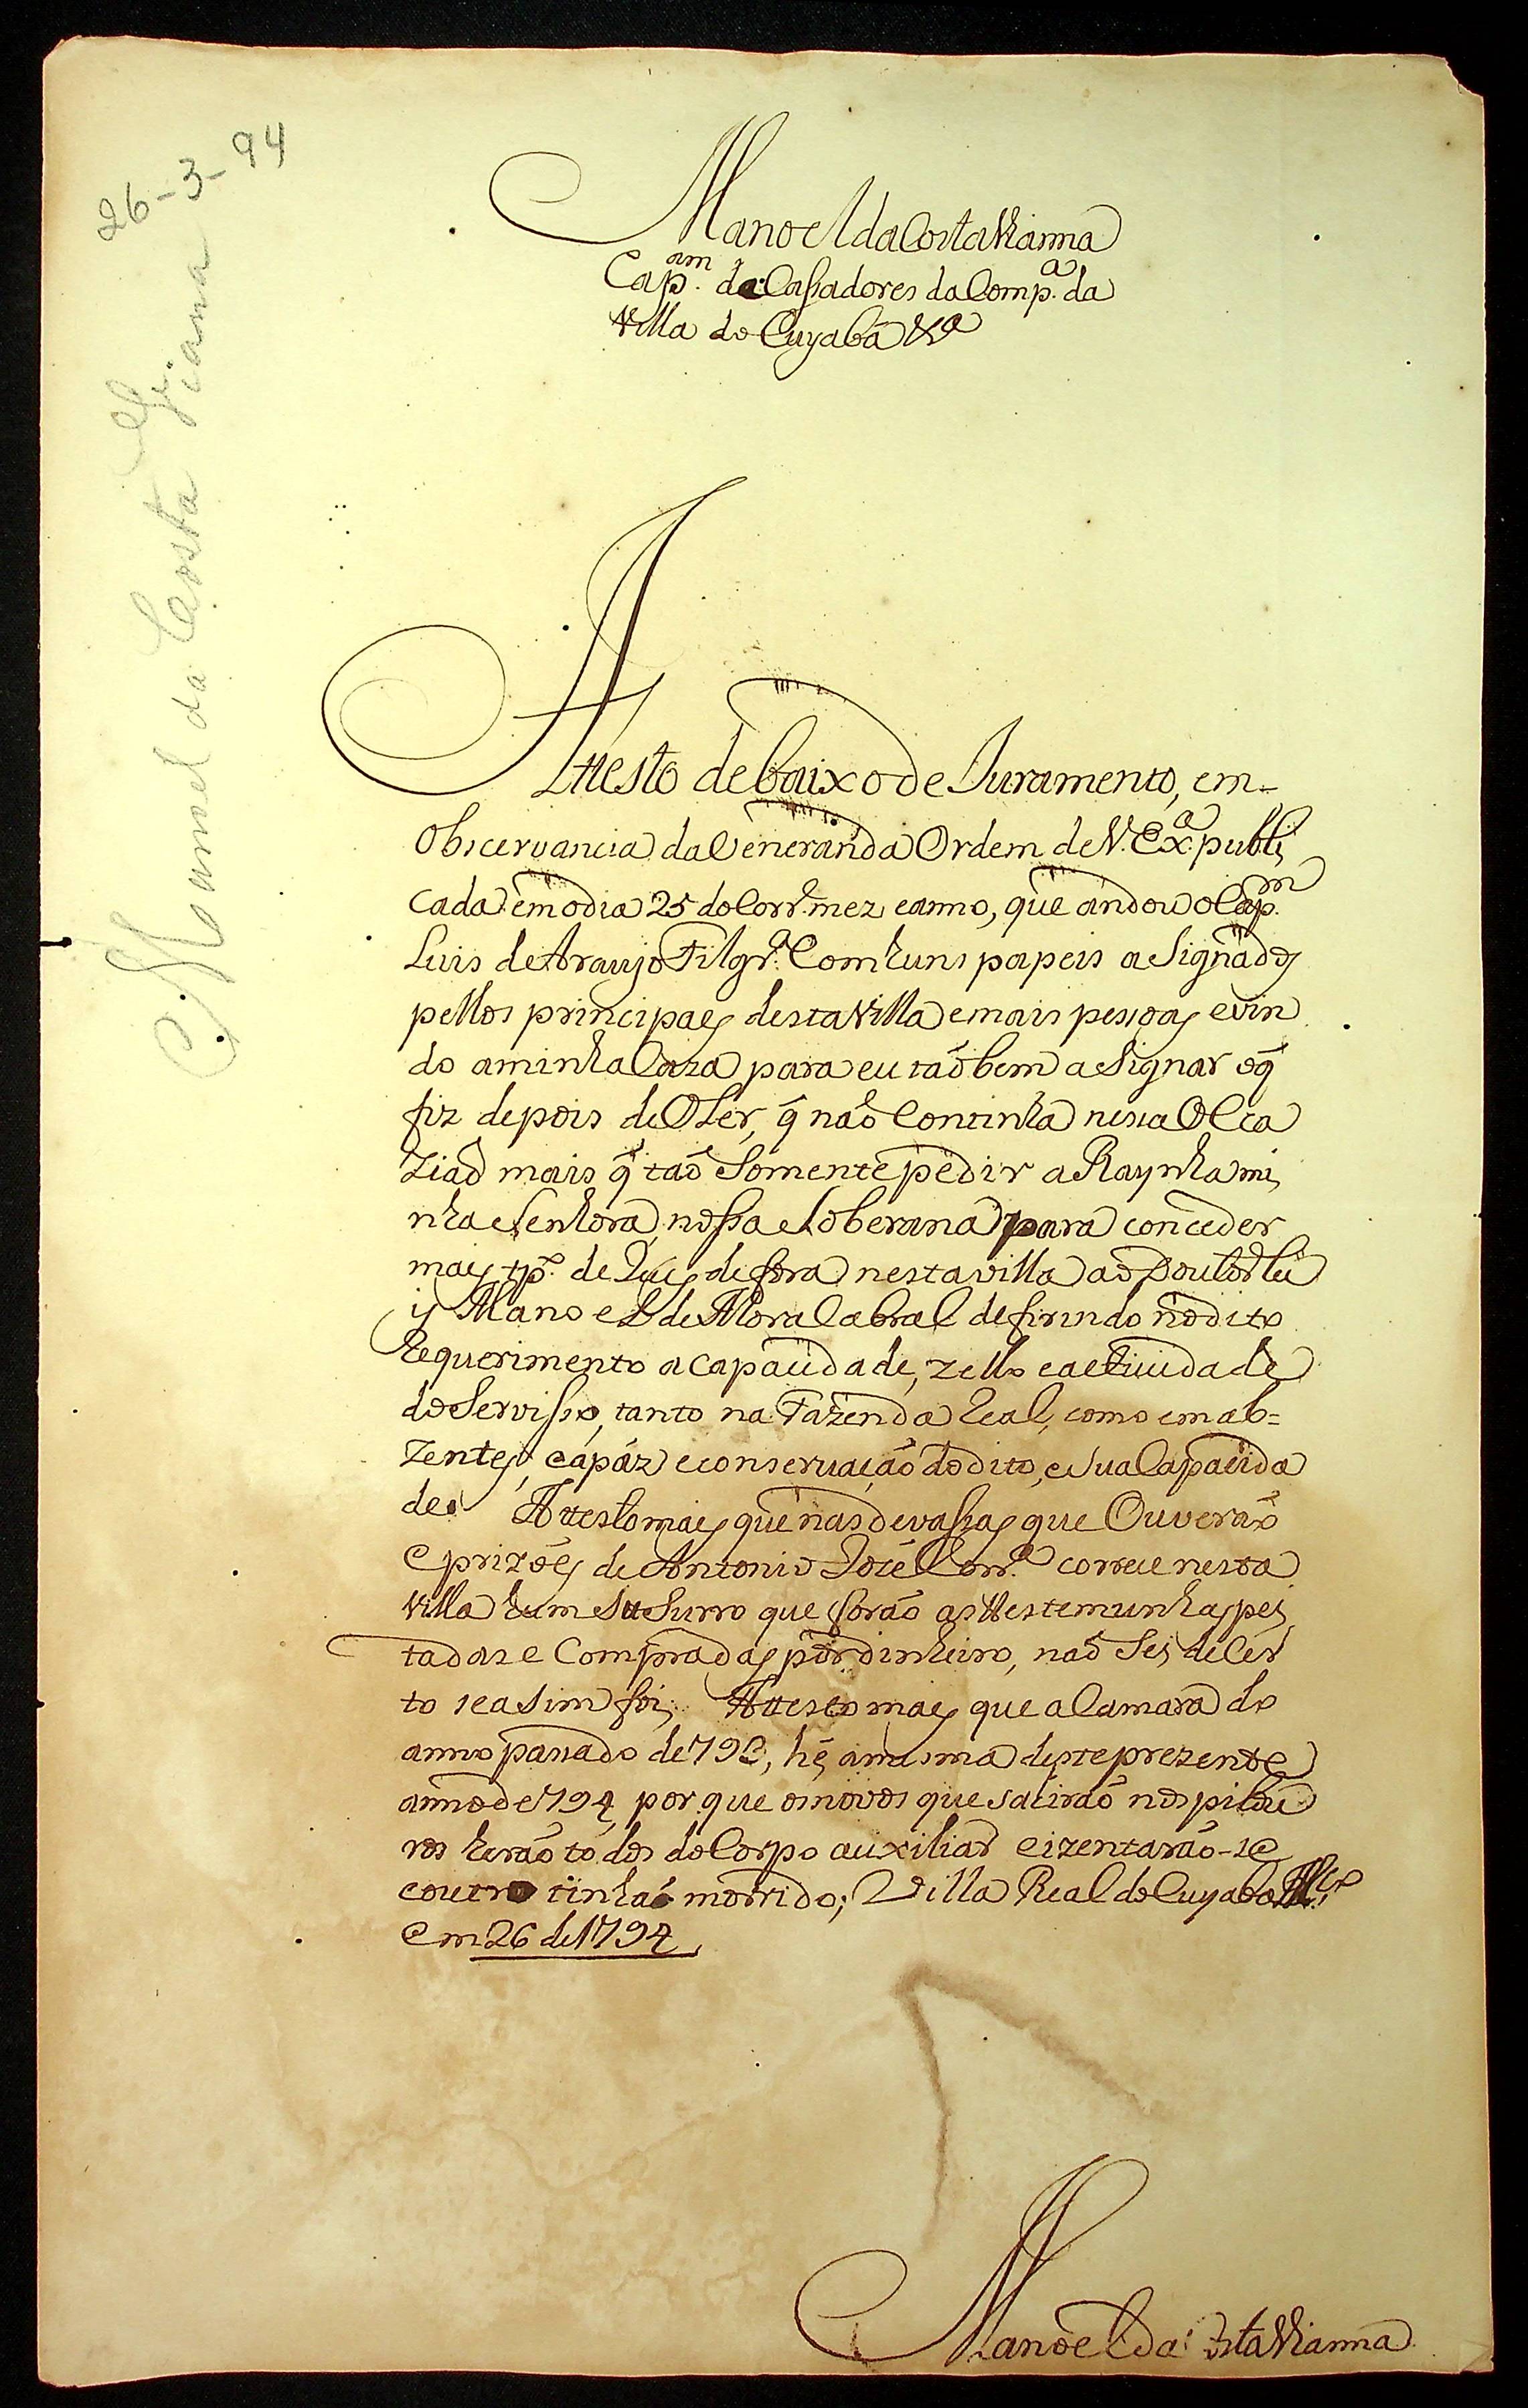 26-3-94
Manoel da Costa Viana
Manoel da Costa Vianna
Cap.am de Cassadores da Comp.a da
Villa do Cuyabá &a
Attesto debaixo de Juramento, em
Obscervancia da Veneranda Ordem de V. Ex.a publi
cada em o dia 25 do Corr.e mez e anno, que andou o Cap.m
Luis de Araujo Filgr.a Com huns papeis a Signados
pellos principaes desta Villa e mais pesoas e vin
do a minha Caza para eu taõbem a Signar o q̃
fiz depois de O Ler, q̃ naõ Continha nesta Ocea
ziaõ mais q̃ taõ Somente pedir a Raynha mi
nha Senhora, nossa Soberana para conceder
mais tp.o de Juis de fora nesta villa ao Doutor Lu
is Manoel de Moura Cabral
Requerimento a capacidade, zello e actividade
do Servisso, tanto na Fazenda Real, como em ab=
zentes, capáz e conservação do dito, e Sua Capacida
de. Attesto mais que nas devassas que Ouveraõ
e prizões de Antonio Jozé Corr.a correu nesta
villa hum Susurro que foraõ as testemunhas pei
tadas e Compradas por dinheiro, naõ Sei de Cer
to se a Sim foi; Attesto mais que a Camara do
anno passado de 793, hé a mesma deste prezente
anno de 794, por que os novos que sahiraõ nos pilou
ros heraõ todos do Corpo auxiliar e izentaraõ-se
e outro tinha morrido; Villa Real do Cuyaba M.ço
em 26 de 1794
Manoel da Costa Vianna